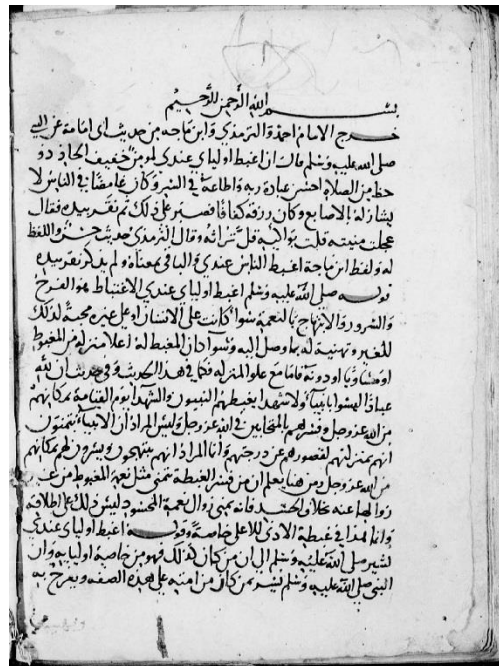 بسم الله الرحمن الرحيم
خرج الامام احمد والترمذي وابن ماجه من حديث ابي امامة عن النبي
صلى الله عليه وسلم قال ان اغبط اوليائي عندي لمؤمن خفيف الحاذ ذو
حظ من الصلاة احسن عبادة ربه واطاعه في السر وكان غامضا في الناس لا
يشار له بالاصابع وكان رزقه كفافا فصبر على ذلك ثم نقر بيده فقال
عجلت منيته قلت بواكيه قل تراثه وقال الترمذي حديث حسن واللفظ
له ولفظ ابن ماجة اغبط الناس عندي والباقي بمعناه ولم يذكر نقر بيده
قوله صلى الله عليه وسلم اغبط اوليائي عندي الاغتباط هو الفرح
والسرور والابتهاج بالنعمة سوا كانت على الانسان او على غيره محبة لذلك
للغير وتهنية له بما وصل اليه وسوا كان المغبط له اعلا منزلة من المغبوط
او مساويا او دونه فاما مع علو المنزله فكما في هذا الحديث وفي حديث ان لله
عبادا ليسوا بانبياء ولا شهدا يغبطهم النبيون والشهدا يوم القيامة بمكانهم
من الله عز وجل وفسرهم بالمتحابين في الله عز وجل وليس المراد ان الانبياء يتمنون
انهم بمنزلتهم لقصورهم عن درجتهم وانما المراد انهم يبتهجون ويسرون لهم بمكانهم
من الله عز وجل ومن هنا يعلم ان من فسر الغبطة بتمني مثل نعمة المغبوط من غير
زوالها عنه بخلاف الحسد فانه تمني زوال نعمة المحسود ليس ذلك على اطلاقه
وانما هذا في غبطة الادنى للاعلى خاصة وقوله اغبط اوليائي عندي
يشير صلى الله عليه وسلم الى ان من كان كذلك فهو من خاصة اوليايه وان
النبي صلى الله عليه وسلم يسر بمن كان من امته على هذه الصفه ويفرح به